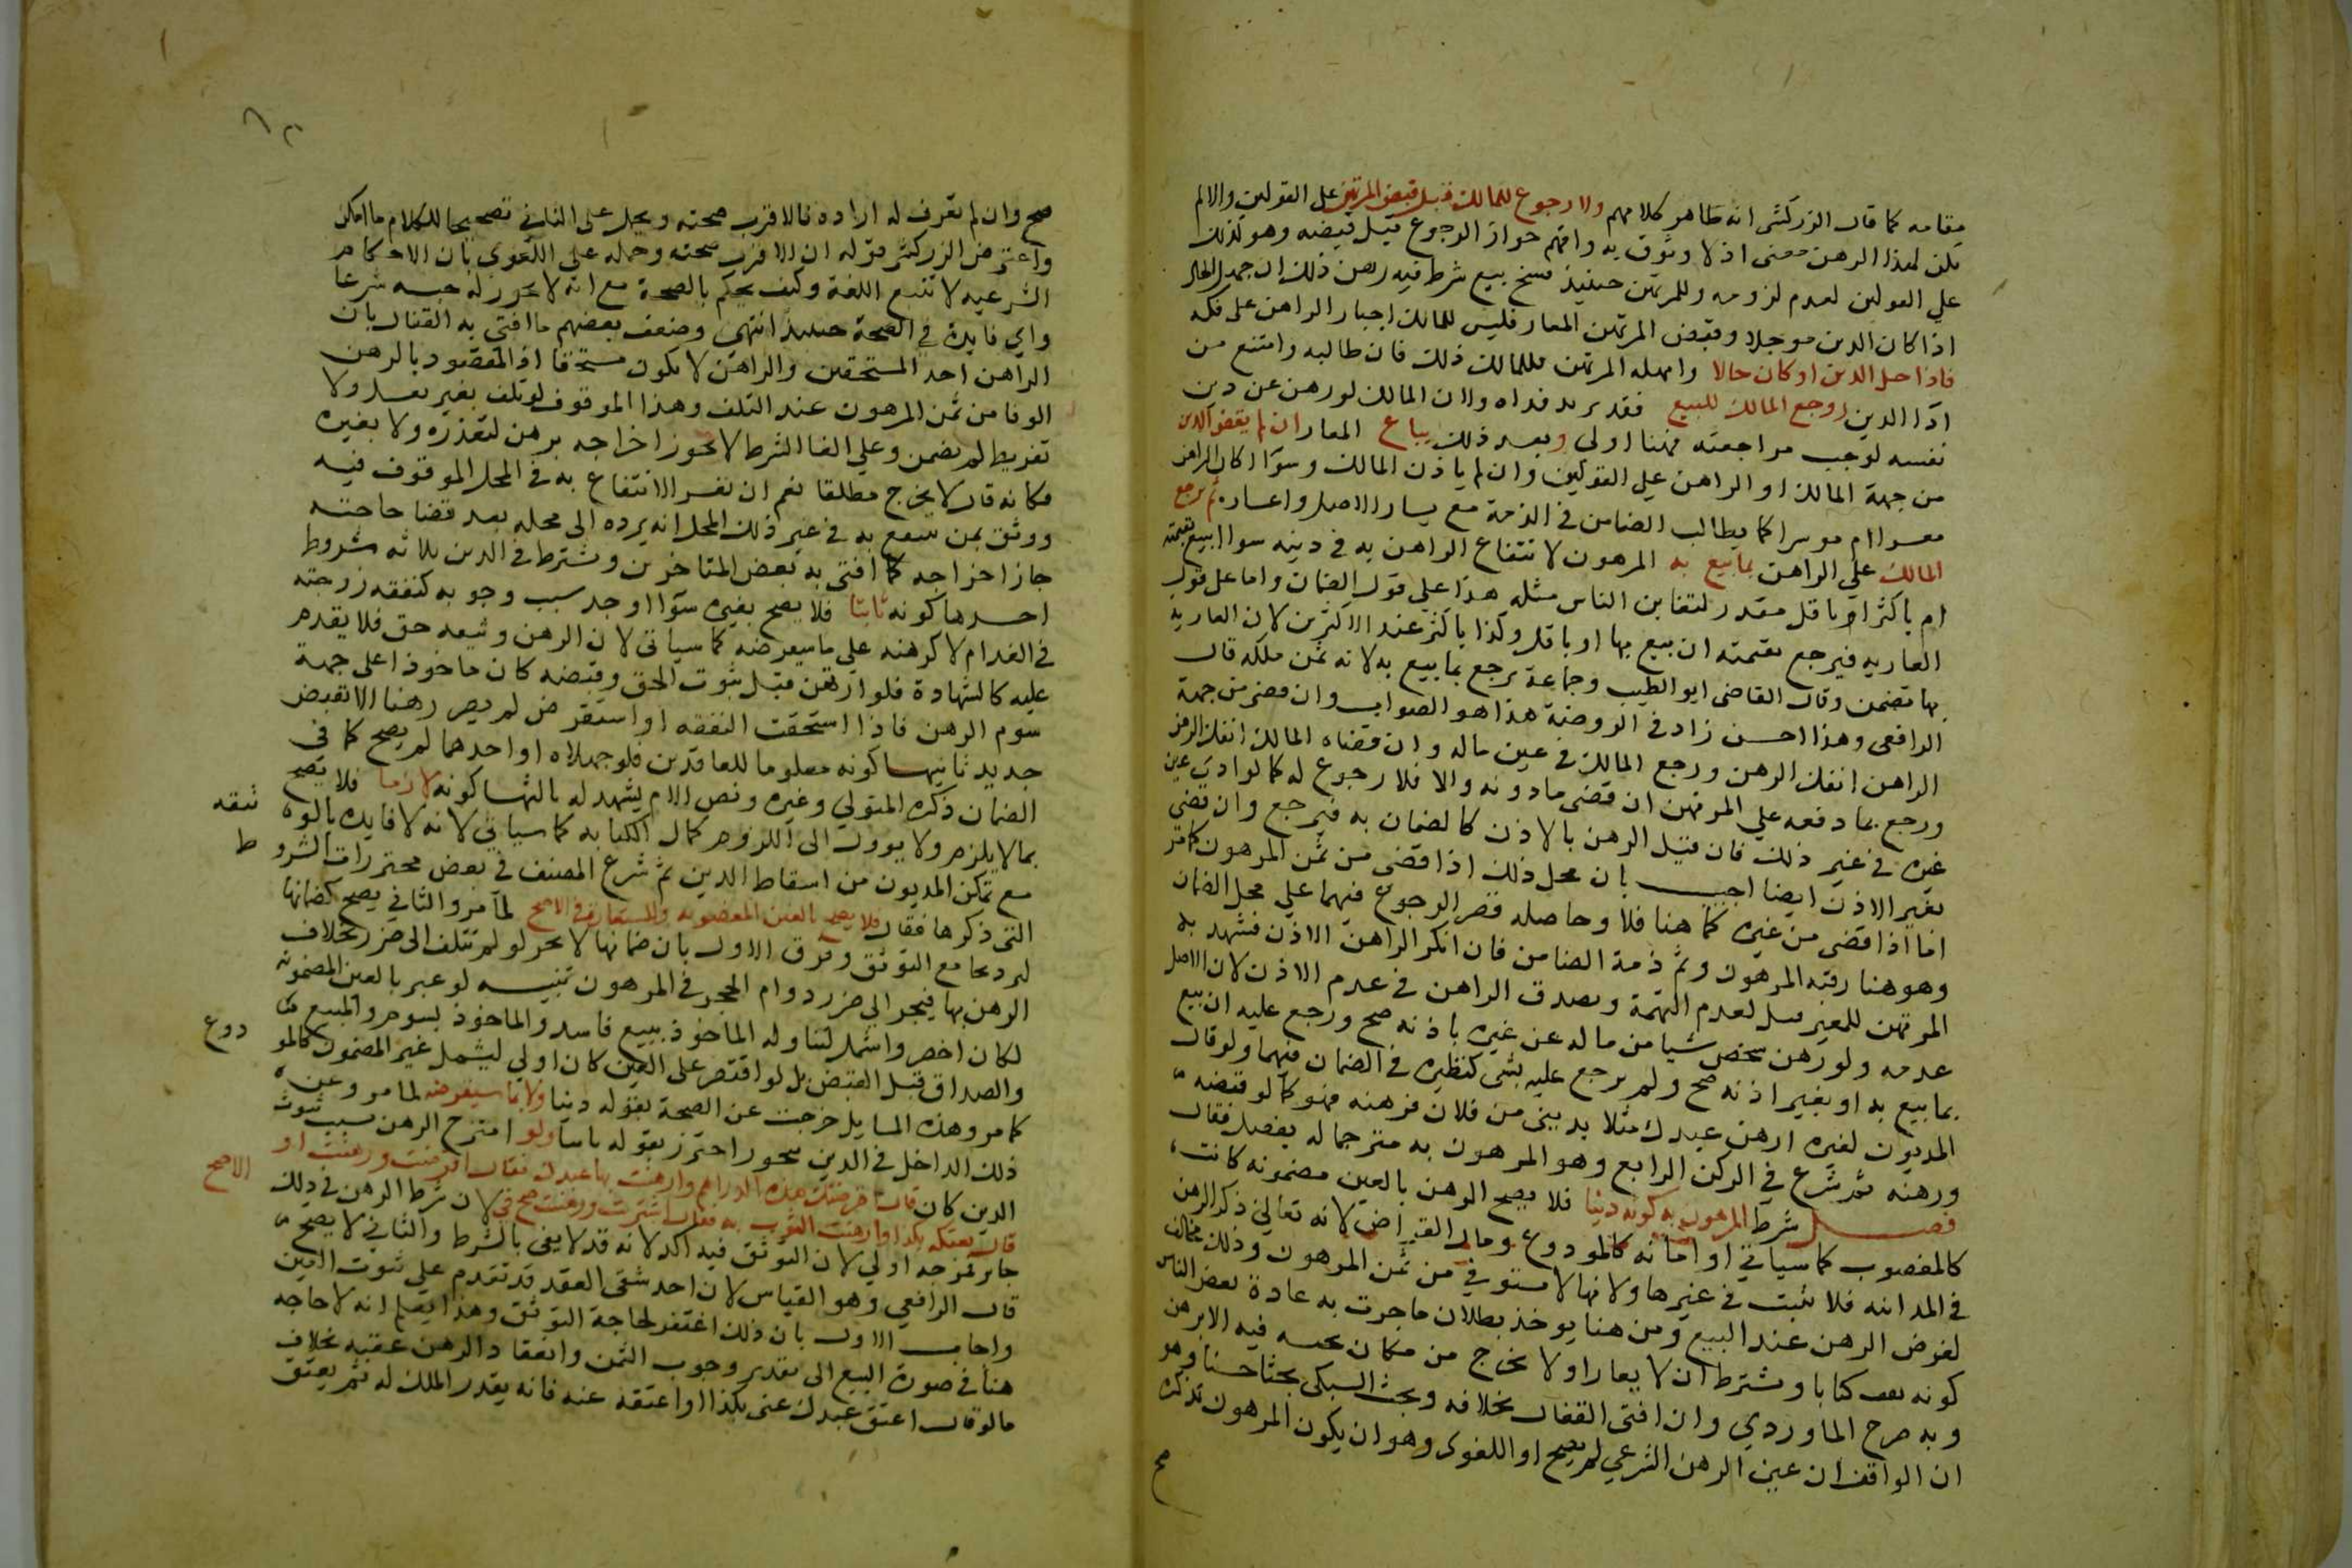 مقامه كما قال الزركشي انه ظاهر كلامهم ولا رجوع للمالك بعد قبض المرتهن على القولين والا لم
يكن لهذا الرهن معنى اذ لا وثوق به وافهم جواز الرجوع قبل قبضه وهو كذلك
علي القولين لعدم لزومه وللمرتهن حينيذ فسخ بيع شرط فيه رهن ذلك ان جهل الحال
اذا كان الدين موجلا وقبض المرتهن المعار فليس للمالك اجبار الراهن على فكه
فاذا حل الدين او كان حالا وامهله المرتهن فللمالك ذلك فان طالبه وامتنع من
ادا الدين روجع المالك للبيع فقد يريد فداه ولان المالك لو رهن عن دين
نفسه لوجب مراجعته فهنا اولى وبعد ذلك يباع المعار ان لم يقض الدين
من جهة المالك او الراهن علي القولين وان لم ياذن المالك وسوا اكان الراهن
معسرا ام موسرا كما يطالب الضامن في الذمة مع يسار الاصل واعساره ثم يرجع
المالك علي الراهن بما بيع به المرهون لانتفاع الراهن به في دينه سوا ابيع بقيمته
ام باكثر ام باقل بقدر لتغابن الناس بمثله هذا علي قول الضمان واما على قول
العاريه فيرجع بقيمته ان بيع بها او باقل وكذا باكثر عند الاكثرين لان العاريه
بها تضمن وقال القاضي ابو الطيب وجماعة يرجع بما بيع به لانه ثمن ملكه قال
الرافعي وهذا احسن زاد في الروضة هذا هو الصواب وان قضى من جهة
الراهن انفك الرهن ورجع المالك في عين ماله وان قضاه المالك انفك الرهن
ورجع بما دفعه علي الراهن ان قضى باذنه والا فلا رجوع له كما لو ادى دين
غيره في غير ذلك فان قيل الرهن بالاذن كالضمان به فيرجع وان قضى
بغير الاذن ايضا اجيب بان محل ذلك اذا قضى من ثمن المرهون كما مر
اما اذا قضى من غيره كما هنا فلا وحاصله قصر الرجوع فيهما علي محل الضمان
وهو هنا رقبة المرهون وثم ذمة الضامن فان انكر الراهن الاذن فشهد به
المرتهن للمعير قبل لعدم التهمة ويصدق الراهن في عدم الاذن لان الاصل
عدمه ولو رهن شخص شيا من ماله عن غيره باذنه صح ورجع عليه ان بيع
بما بيع به او بغير اذنه صح ولم يرجع عليه بشي كنظيره في الضمان فيهما ولو قال
المديون لغيره ارهن عبدك مثلا بديني من فلان فرهنه فهو كما لو قبضه
ورهنه ثم شرع في الركن الرابع وهو المرهون به مترجما له بفصل فقال
فصل شرط المرهون به كونه دينا فلا يصح الرهن بالعين مضمونه كانت
كالمغصوب كما سياتي او امانه كالمودوع ومال القراض لانه تعالي ذكر الرهن
في المداينه فلا يثبت في غيرها ولانها لا تستوفي من ثمن المرهون وذلك مخالف
لغرض الرهن عند البيع ومن هنا يوخذ بطلان ما جرت به عادة بعض الناس
كونه يقف كتابا ويشترط ان لا يعار او لا يخرج من مكان يحبسه فيه الا برهن
وبه صرح الماوردي وان افتى القفال بخلافه وبحث السبكي بحثا حسنا وهو
ان الواقف ان عين الرهن الشرعي لم يصح او اللغوى وهو ان يكون المرهون تذكره
صح
٨٢
صح وان لم نعرف له اراده فالاقرب صحته ويحمل على الثاني تصحيحا للكلام ما امكن
واعترض الزركشي قوله ان الاقرب صحته وحمله علي اللغوي بان الاحكام
الشرعيه لا تتبع اللغة وكيف يحكم بالصحة مع انه لا يجوز له حبسه شرعا
واي فايدة في الصحة حينيذ انتهى وضعف بعضهم ما افتى به القفال بان
الراهن احد المستحقين والراهن لا يكون مستحقا اذ المقصود بالرهن
الوفا من ثمن المرهون عند التلف وهذا الموقوف لو تلف بغير تعد ولا
تفريط لم يضمن وعلي الغا الشرط لا يجوز اخراجه برهن لتعذره ولا بغيره
فكانه قال لا يخرج مطلقا نعم ان تعسر الانتفاع به في المحل الموقوف فيه
ووثق بمن ينتفع به في غير ذلك المحل انه يرده الى محله بعد قضا حاجته
جاز اخراجه كما افتى به بعض المتاخرين ويشترط في الدين ثلاثه شروط
احدها كونه ثابتا فلا يصح بغيره سوا اوجد سبب وجوبه كنفقه زوجته
في الغد ام لا كرهنه علي ما سيقرضه كما سياتي لان الرهن وثيقه حق فلا يقدم
عليه كالشهادة فلو ارتهن قبل ثبوت الحق وقبضه كان ماخوذا على جهة
سوم الرهن فاذا استحقت النفقه او استقرض لم يصر رهنا الا بقبض
جديد ثانيها كونه معلوما للعاقدين فلو جهلاه او احدهما لم يصح كما في
الضمان ذكره المتولي وغيره ونص الام يشهد له ثالثها كونه لازما فلا يصح
بما لا يلزم ولا يوول الى اللزوم كمال الكتابه كما سياتي لانه لا فايده بالوثيقه
مع تمكن المديون من اسقاط الدين ثم شرع المصنف في بعض محترزات الشروط
التي ذكرها فقال فلا يصح بالعين المغصوبه والمستعارة في الاصح لما مر والثاني يصح كضمانها
لم ردها مع التوثق وفرق الاول بان ضمانها لا يجر لو لم تتلف الى ضرر بخلاف
الرهن بها فيجر الي ضرر دوام الحجر في المرهون تنبيه لو عبر بالعين المضمونه
لكان اخصر واشمل لتناوله الماخوذ ببيع فاسد والماخوذ بسوم والمبيع
والصداق قبل القبض بل لو اقتصر على العين كان اولى ليشمل غير المضمون كالمودوع
كما مر وهذه المسايل خرجت عن الصحة بقوله دينا ولا بما سيقرضه لما مر وعن
ذلك الداخل في الدين بتجوز احترز بقوله ثابتا ولو امتزج الرهن بسبب ثبوت
الدين كان قال اقرضتك هذه الدراهم وارتهنت بها عبدك فقال اقترضت ورهنت او
قال بعتكه بكذا وارتهنت الثوب به فقال اشتريت ورهنت صح في الاصح لان شرط الرهن في ذلك
جايز فمزجه اولي لان التوثق فيه اكد لانه قد لا يفي بالشرط والثاني لا يصح
قال الرافعي وهو القياس لان احد شقى العقد قد تقدم على ثبوت الدين
واجاب الاول بان ذلك اغتفر لحاجة التوثق وهذا يعلم انه لا حاجه
هنا في صورة البيع الى تقدير وجوب الثمن وانعقاد الرهن عقبه بخلاف
ما لو قال اعتق عبدك عني بكذا او اعتقه عنه فانه يقدر الملك له ثم يعتق